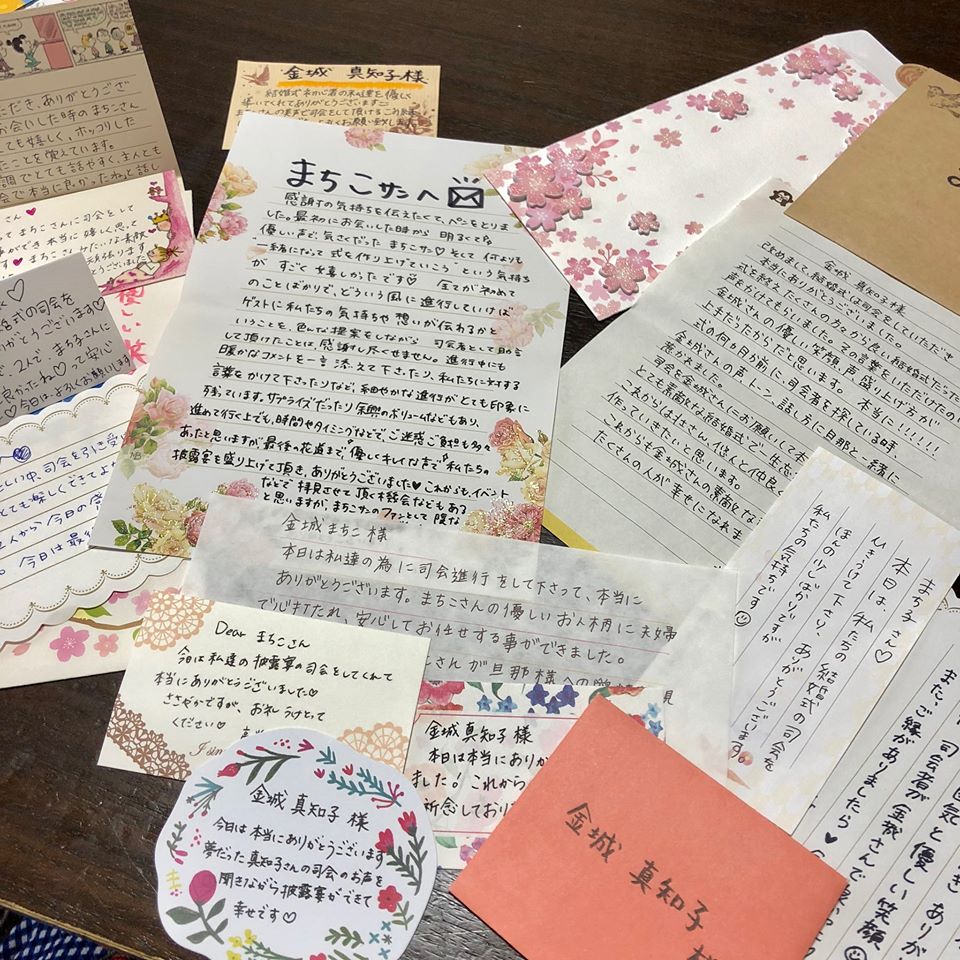 ただき、ありがとうござい
お会いした時のまちこさん
ても嬉しく、ホッコリした
たことを覚えています。
調でとても話やすく、主人とも
会で本当に良かったねと話し
金城 真知子様
結婚式初心者の私達を優しく
導いてくれてありがとうございます
まちこサンへ
感謝の気持ちを伝えたくて、ペンをとりま
した。最初にお会いした時から 明るくて
優しい声で、気さくだった まちこサン♡ そして 何よりも
一緒になって 式を作り上げていこう という気持ち
が すごく 嬉しかったです♡ 全てが初めて
のことばかりで、どういう風に進行していけば
ゲストに私たちの気持ちや想いが伝わるかと
いうことを、色んな提案をしながら 司会者として助言
して頂けたことは感謝しつくせません。進行中にも
暖かなコメントを一言添えて下さったり、私たちに対する
言葉をかけて下さったりなど、細やかな進行がとても印象に
残っています。サプライズだったり余興のボリュームなどもあり、
進めて行く上でも、時間やタイミングなどで、ご迷惑ご負担も多々
あったと思いますが最後の花道まで"優しくキレイな声で"私たちの
披露宴を盛り上げて頂き、ありがとうございました♡ これからも、イベント
などで 拝見させて頂く機会などもある
と思いますが、まちこサンのファンとして 陰な
さん♡
てまちこさんに司会をして
事ができ 本当に嬉しく思って
♡まちこさんみたいな素敵
頑張ります
ございました
式の司会を
がとうございます♡
2人で、まち子さんに
良かったね♡って安心
♡今日はよろしくお願いします
しい中、司会を引き受
とても楽しくできてよ
2人から 今日の感
。今日は最
金城 真知子様
改めまして、結婚式の司会をしていただき
本当にありがとうございました。
式を終え、たくさんの方々から良い結婚式だった
声をかけてもらいました。その言葉をいただけたの
金城さんの優しい笑顔、声、盛り上げ方が
上手だったからだと思います。本当に!!!!!!
式の何か月か前に司会者を探している時
金城さんの声、トーン、話し方に旦那と一緒に
惹かれました。
司会を金城さんにお願いして本
とても素敵な結婚式で一生
これからは主人と仲良く
作っていきたいと思います。
これからも金城さんの素敵な
たくさんの人が幸せになれま
金城まちこ様
本日は私達の為に司会進行をして下さって、本当に
ありがとうございます。まちこさんの優しいお人柄に夫婦
で心打たれ、安心してお任せする事ができました。
さんが旦那様への
Dear まちこさん
今日は私達の披露宴の司会をしてくれて
本当にありがとうございました♡
ささやかですが、お礼うけとって
ください♡
金城真知子様
本日は本当にありが
ました! これから
祈念しており
金城 真知子 様
今日は本当にありがとうございます
夢だった真知子さんの司会のお声を
聞きながら披露宴ができて
幸せです♡
金城 真知子 様
まち子さん♡
本日は、私たちの結婚式の司会を
ひきうけて下さり、ありがとうございます。
ほんの少しばかりですが
私たちの気持ちです
囲気と優しい笑顔
司会者が金城さんで
また、ご縁がありましたら♥